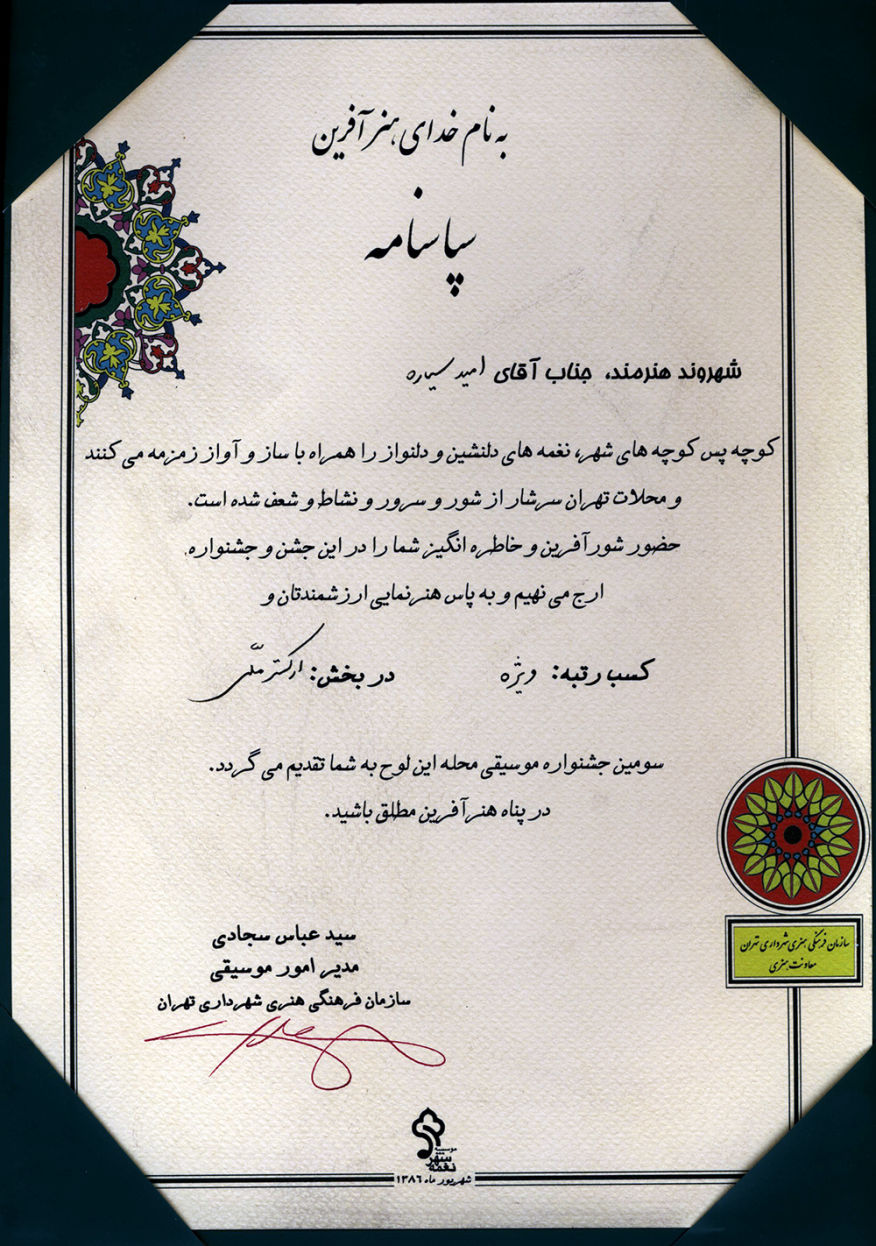 به نام خدای هنرآفرین
سپاسنامه
شهروند هنرمند، جناب آقای امید سیاره
کوچه پس کوچه های شهر، نغمه های دلنشین و دلنواز را همراه با ساز و آواز زمزمه می کنند
و محلات تهران سرشار از شور و سرور و نشاط و شعف شده است.
حضور شورآفرین و خاطره انگیز شما را در این جشن و جشنواره
ارج می نهیم و به پاس هنرنمایی ارزشمندتان و
کسب رتبه: ویژه در بخش: ارکستر ملّی
سومین جشنواره موسیقی محله این لوح به شما تقدیم می گردد.
در پناه هنرآفرین مطلق باشید.
سازمان فرهنگی هنری شهرداری تهران
معاونت هنری
سید عباس سجادی
مدیر امور موسیقی
سازمان فرهنگی هنری شهرداری تهران
موسسه
نغمه شهر
شهریور ماه ۱۳۸۶